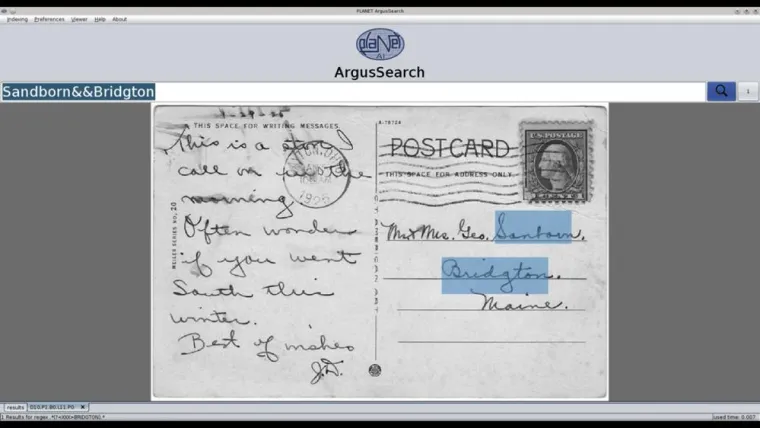 PLANET ArgusSearch
Indexing Preferences Viewer Help About
PLANET
AI
ArgusSearch
Sandborn&&Bridgton
1
THIS SPACE FOR WRITING MESSAGES.
This is a story I
call on
morning.
Often wonder
if you went
South this
winter.
Best of wishes
J.D.
MEILER SERIES NO. 20
1925
A-78728
POSTCARD
THIS SPACE FOR ADDRESS ONLY
U.S. POSTAGE
Mr & Mrs. Geo. Sanborn.
Bridgton.
Maine.
results
1 Results for regex
used time: 0.007